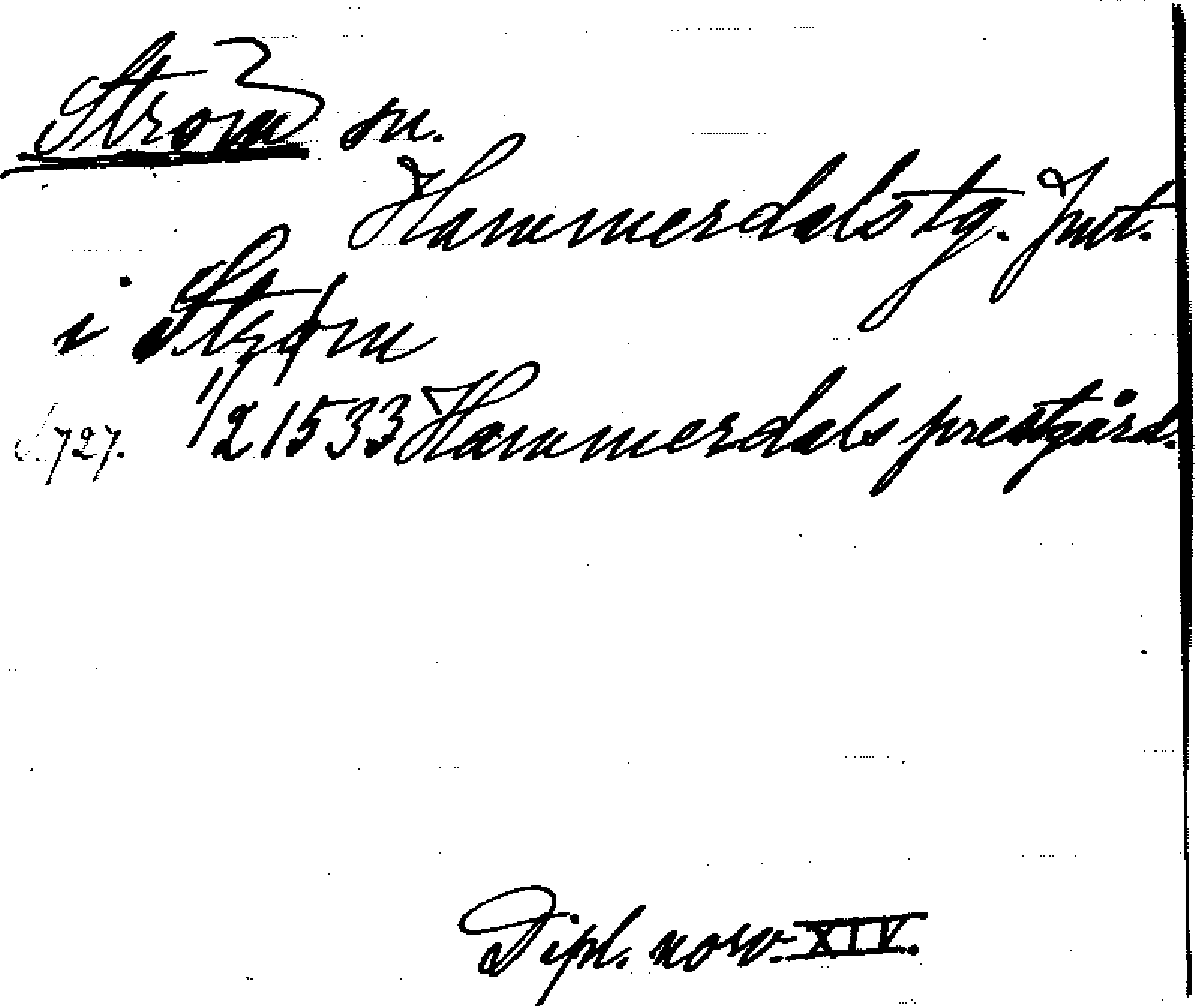 Ström sn.
Hammerdals tg. Jmt.
i Strøm
s. 727. 1/2 1533 Hammerdals prestgård.
Dipl. norv. XIV.